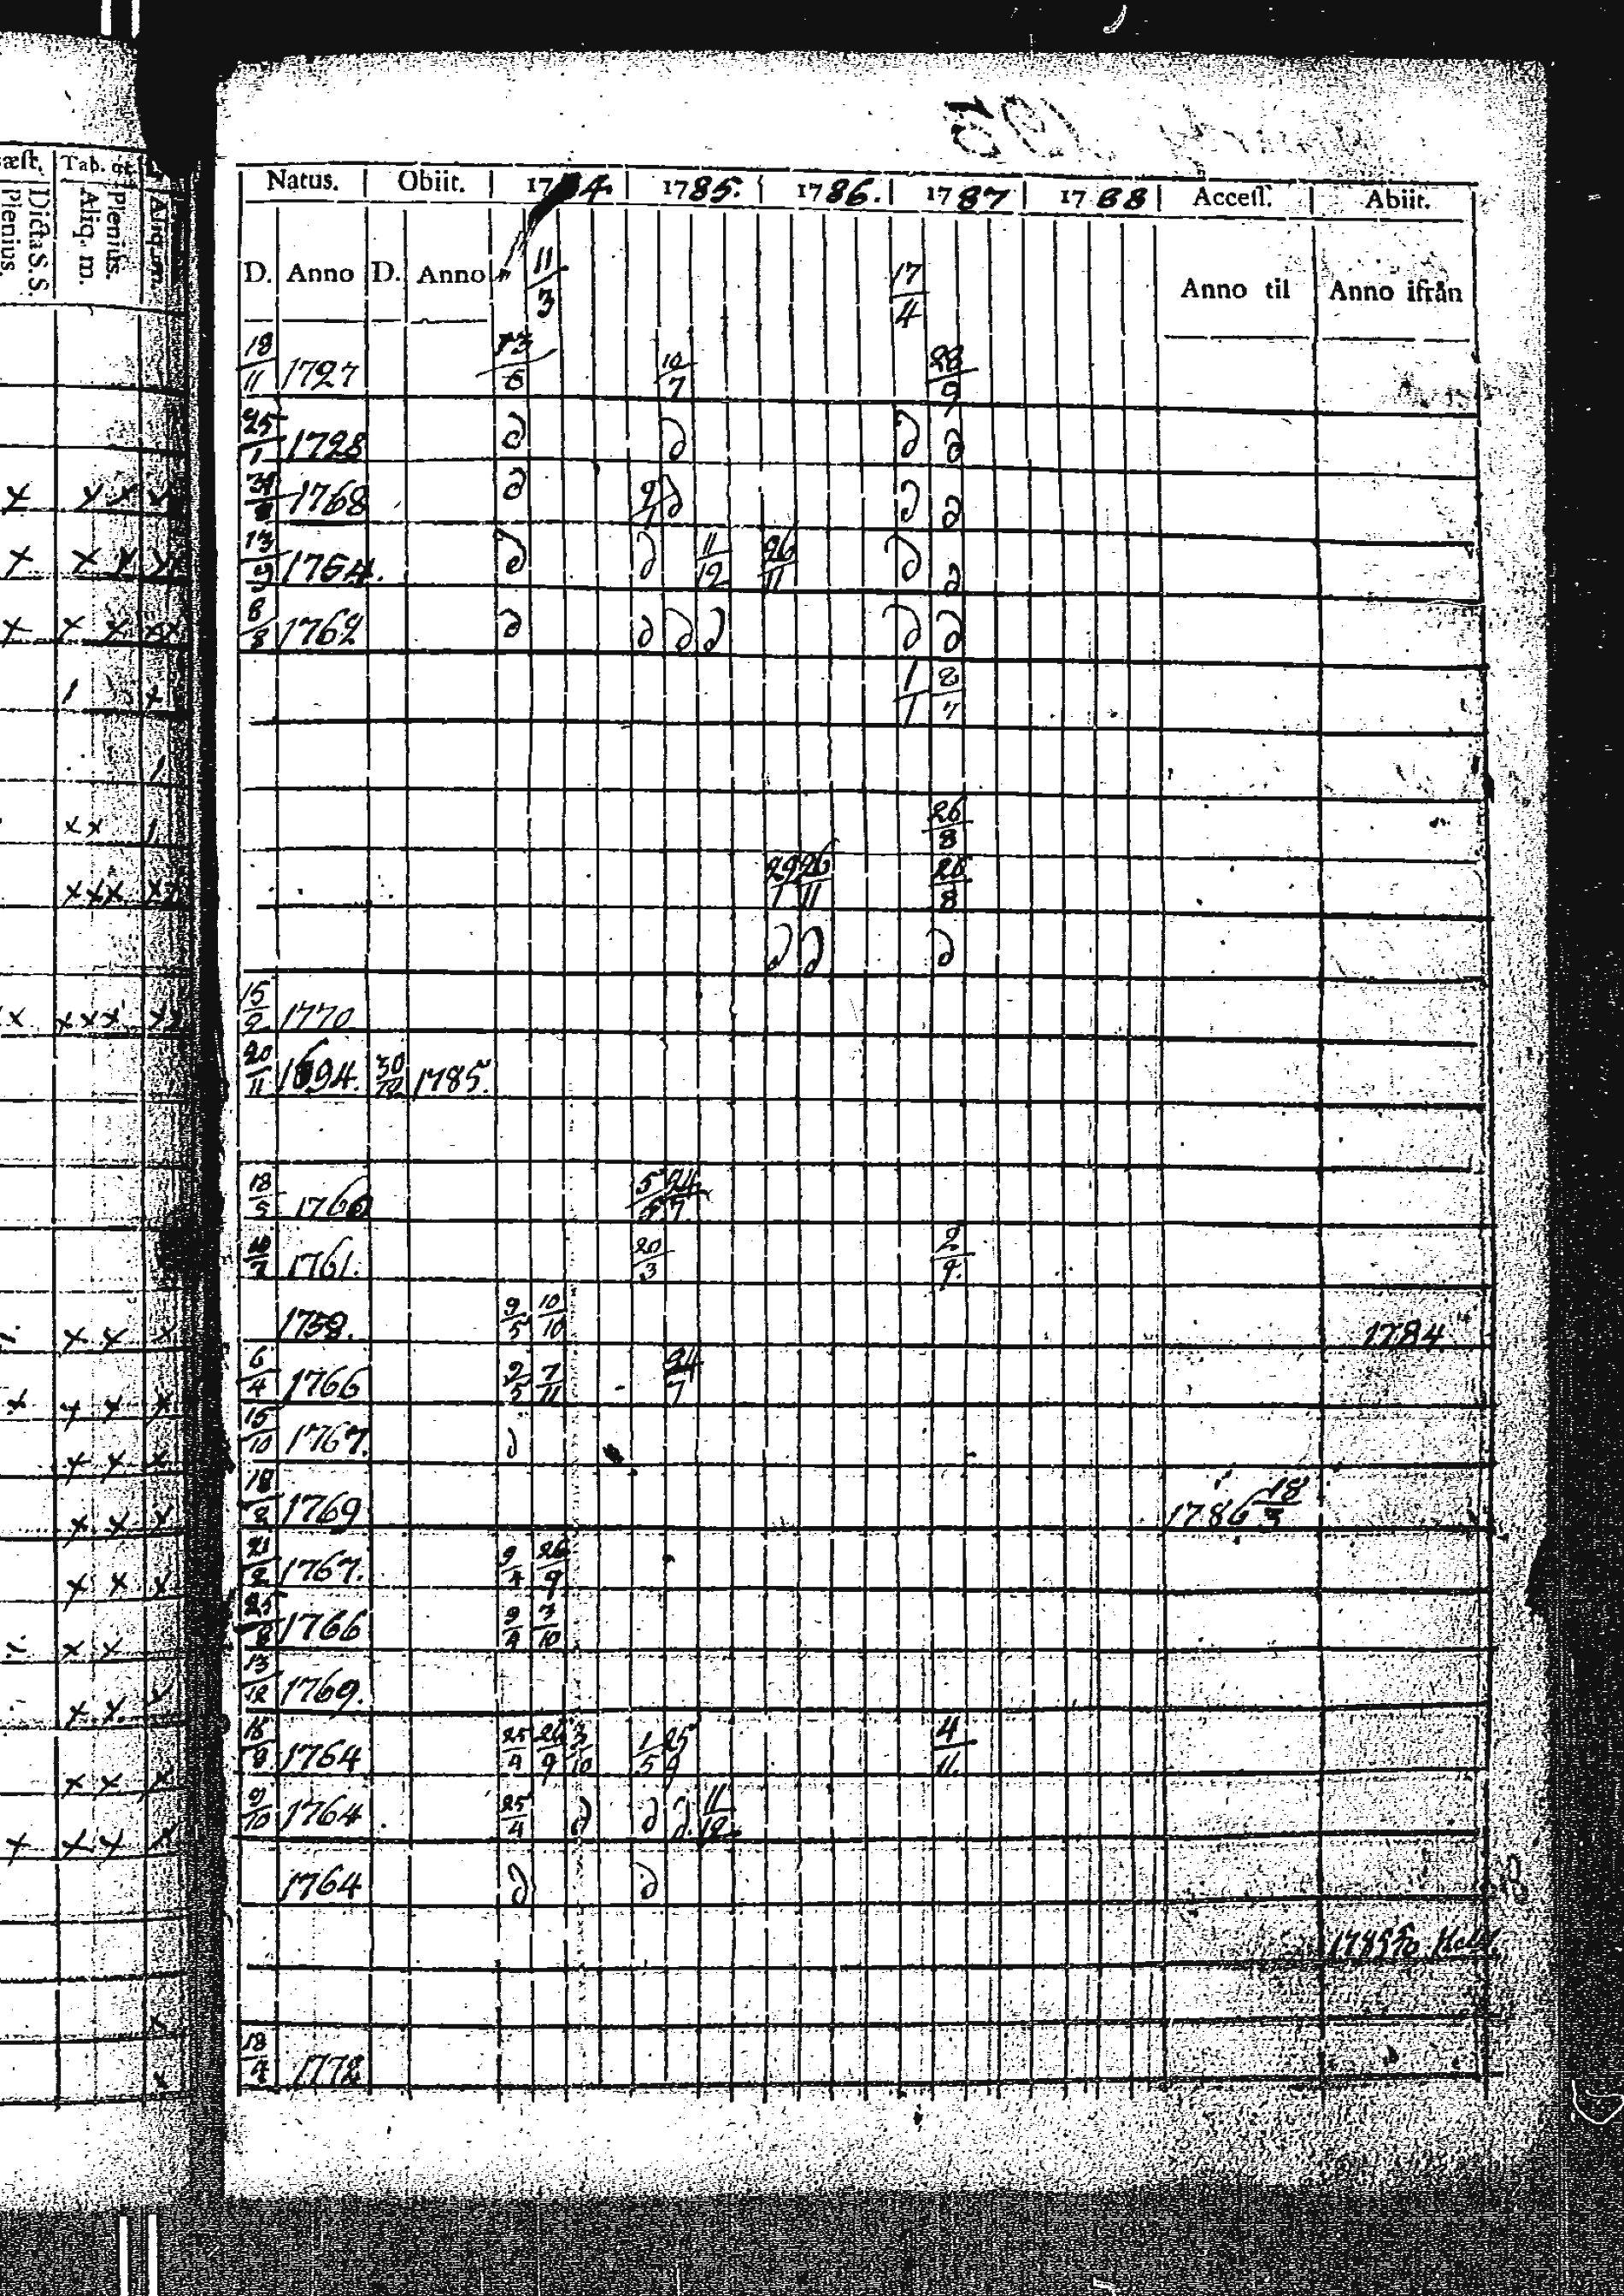 æſt. Tab. œc.
Plenius. Dicta S. S. Aliq. m. Plenius. Aliq. m.
Natus. Obiit. 1784. 1785. 1786. 1787 1788 Acceſſ. Abiit.
D. Anno D. Anno 11/3 17/4 Anno til Anno ifrån
18/11 1727 13/6 10/7 28/9
25/1 1728 D D D D
1768 D 9/1 D D D
13/9 1764. D D 11/12 26/11 D D
8/8 1762 D D D D D D
1/1 2/7
26/8
29/1 26/11 26/8
D D D
15/2 1770
20/11 1694. 30/12 1785.
18/5 1760 5/5 24/7
1761. 20/3 2/9.
1759. 9/5 10/10 1784
6/4 1766 9/5 7/11 24/7
15/10 1767. D
18/2 1769 1786 18/3
21/2 1767. 9/4 26/9
1766 9/4 3/10
13/12 1769.
16/9 1764 25/4 26/9 3/10 1/5 25/9 4/11.
9/10 1764 25/4 D D D. 11/12
1764 D D
18/4 1772